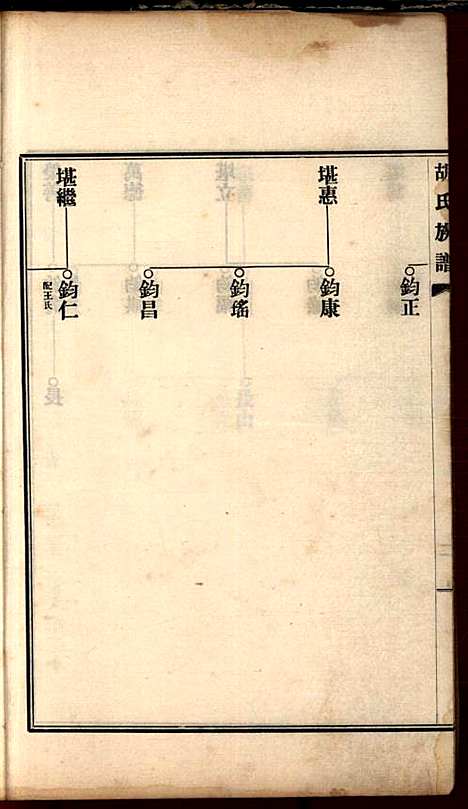 胡氏族譜
鈞正
堪惠
鈞康
鈞瑤
鈞昌
堪繼
鈞仁
配王氏